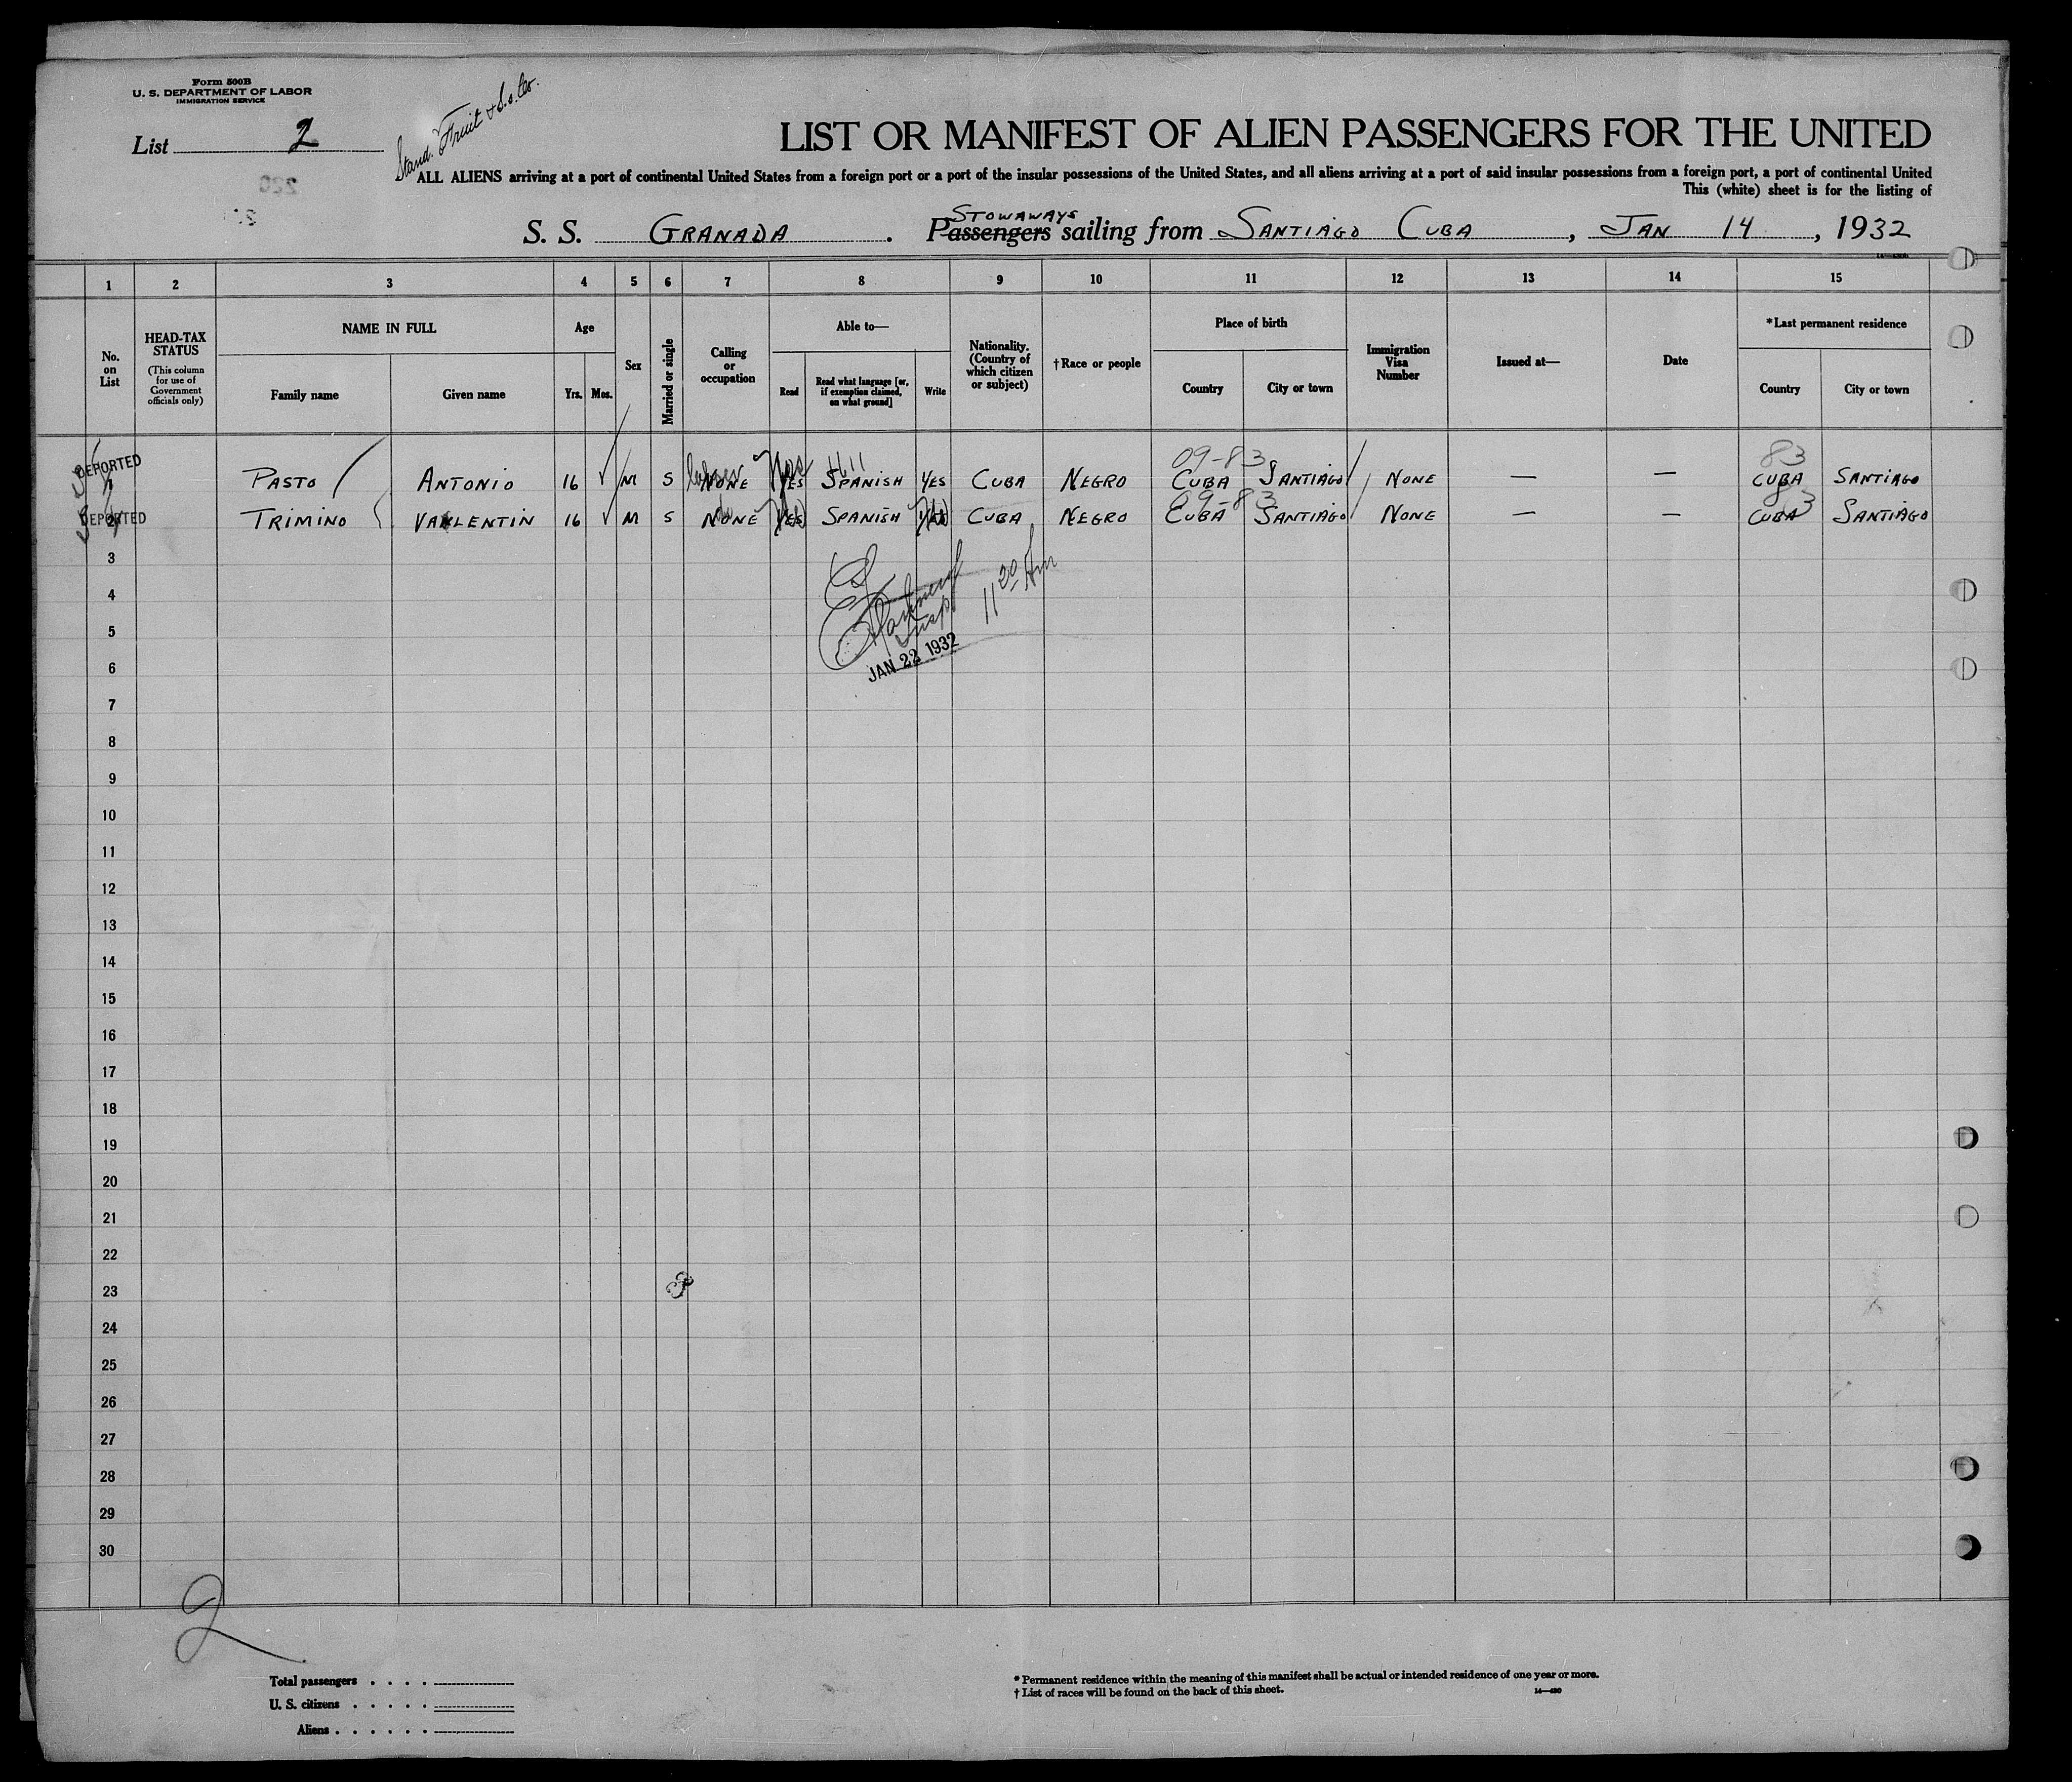 Form 500B
U. S. DEPARTMENT OF LABOR
IMMIGRATION SERVICE
List 2
Stand. Fruit & S.s. Co.
LIST OR MANIFEST OF ALIEN PASSENGERS FOR THE UNITED
ALL ALIENS arriving at a port of continental United States from a foreign port or a port of the insular possessions of the United States, and all aliens arriving at a port of said insular possessions from a foreign port, a port of continental United
This (white) sheet is for the listing of
STOWAWAYS
S. S. GRANADA. Passengers sailing from SANTIAGO CUBA, JAN 14, 1932
1 2 3 4 5 6 7 8 9 10 11 12 13 14 15
No. on List
HEAD-TAX STATUS
(This column for use of Government officials only)
NAME IN FULL
Family name Given name
Age
Yrs. Mos.
Sex
Married or single
Calling or occupation
Able to—
Read
Read what language [or, if exemption claimed, on what ground]
Write
Nationality. (Country of which citizen or subject)
†Race or people
Place of birth
Country City or town
Immigration Visa Number
Issued at—
Date
*Last permanent residence
Country City or town
09-83 83
DEPORTED 1 PASTO ANTONIO 16 M S NONE YES SPANISH YES CUBA NEGRO CUBA SANTIAGO NONE — — CUBA SANTIAGO
09-83 83
DEPORTED 2 TRIMINO VALENTIN 16 M S NONE YES SPANISH CUBA NEGRO CUBA SANTIAGO NONE — — CUBA SANTIAGO
3
4
11 20 Am
5
Insp
6
JAN 22 1932
7
8
9
10
11
12
13
14
15
16
17
18
19
20
21
22
23
24
25
26
27
28
29
30
2
Total passengers . . . .
U. S. citizens . . . . .
Aliens . . . . . .
* Permanent residence within the meaning of this manifest shall be actual or intended residence of one year or more.
† List of races will be found on the back of this sheet.